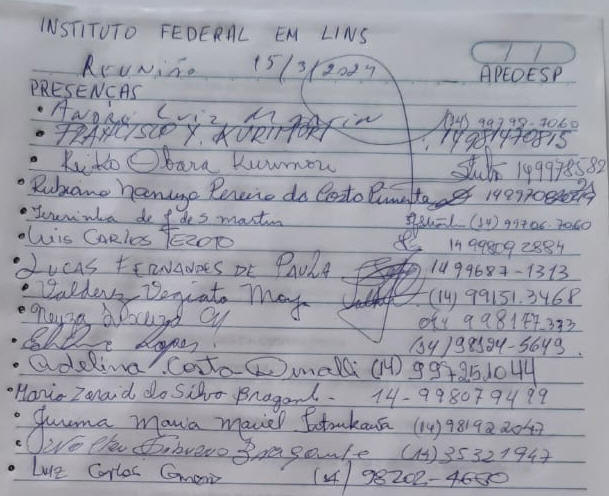 INSTITUTO FEDERAL EM LINS
REUNIÃO 15/3/2024
APEOESP
PRESENÇAS
• André Luiz M (14) 99798-7060
• FRANCISCO Y. KURIMORI 14981470815
• Reiko Obara Kurimori 149978582
• Rubiano Pereira da Costa Pimenta
• Teresinha de J de S martins (14) 99706-7060
• Luis CARLOS TEZOTO 14 99809 2884
• LUCAS FERNANDES DE PAULA 14 99687-1313
• Valderez Vegiato Moya (14) 99151.3468
• Neyza 014 998177.373
• Lopes. (14) 98124-5649.
• Adelina Costa (14) 997251044
• Maria Zoraid da Silva Bragant. 14-998079499
• Jurema Maria Maciel Fotsukawa (14) 981922047
• Bragante (14) 35321947
• Luiz Carlos (14) 98202-4650